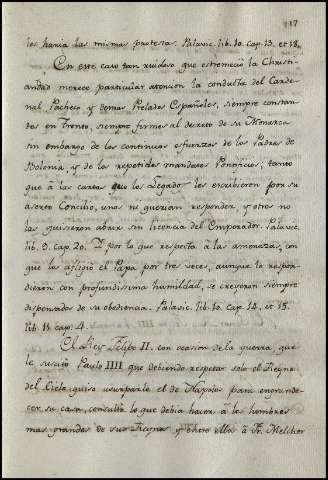 117
les haria las mismas protestas. Palavic. lib. 10. cap. 13. et 18.
En este caso tan ruidoso que estremeció la Christi-
andad merece particular atencion la conducta del Carde-
nal Pacheco y demas Prelados Españoles, siempre constan-
tes en Trento, siempre firmes al decreto de su Monarca
sin embargo de los continuos esfuerzos de los Padres de
Bolonia, y de los repetidos mandatos Pontificios; tanto
que à las cartas que los Legados les escribieron por su
aserto Concilio, unos ni querian responder y otros no
las quisieron abrir sin licencia del Emperador. Palavic.
lib. 9. cap. 20. Y por lo que respecta à las amenazas, con
que los afligió el Papa por tres veces, aunque le respon-
dieron con profundissima humildad, se creyeron siempre
dispensados de su obediencia. Palavic. lib. 10. cap. 14. et 15.
lib. 11. cap. 4.
El Rey Felipe II. con ocasion de la guerra que
le suscitó Paulo IIII que debiendo respetar solo el Reyno
del Cielo quiso usurparle el de Napoles para engrande-
cer su casa, consultó lo que debia hacer à los hombres
mas grandes de sus Reynos y entre ellos à Fr. Melchor